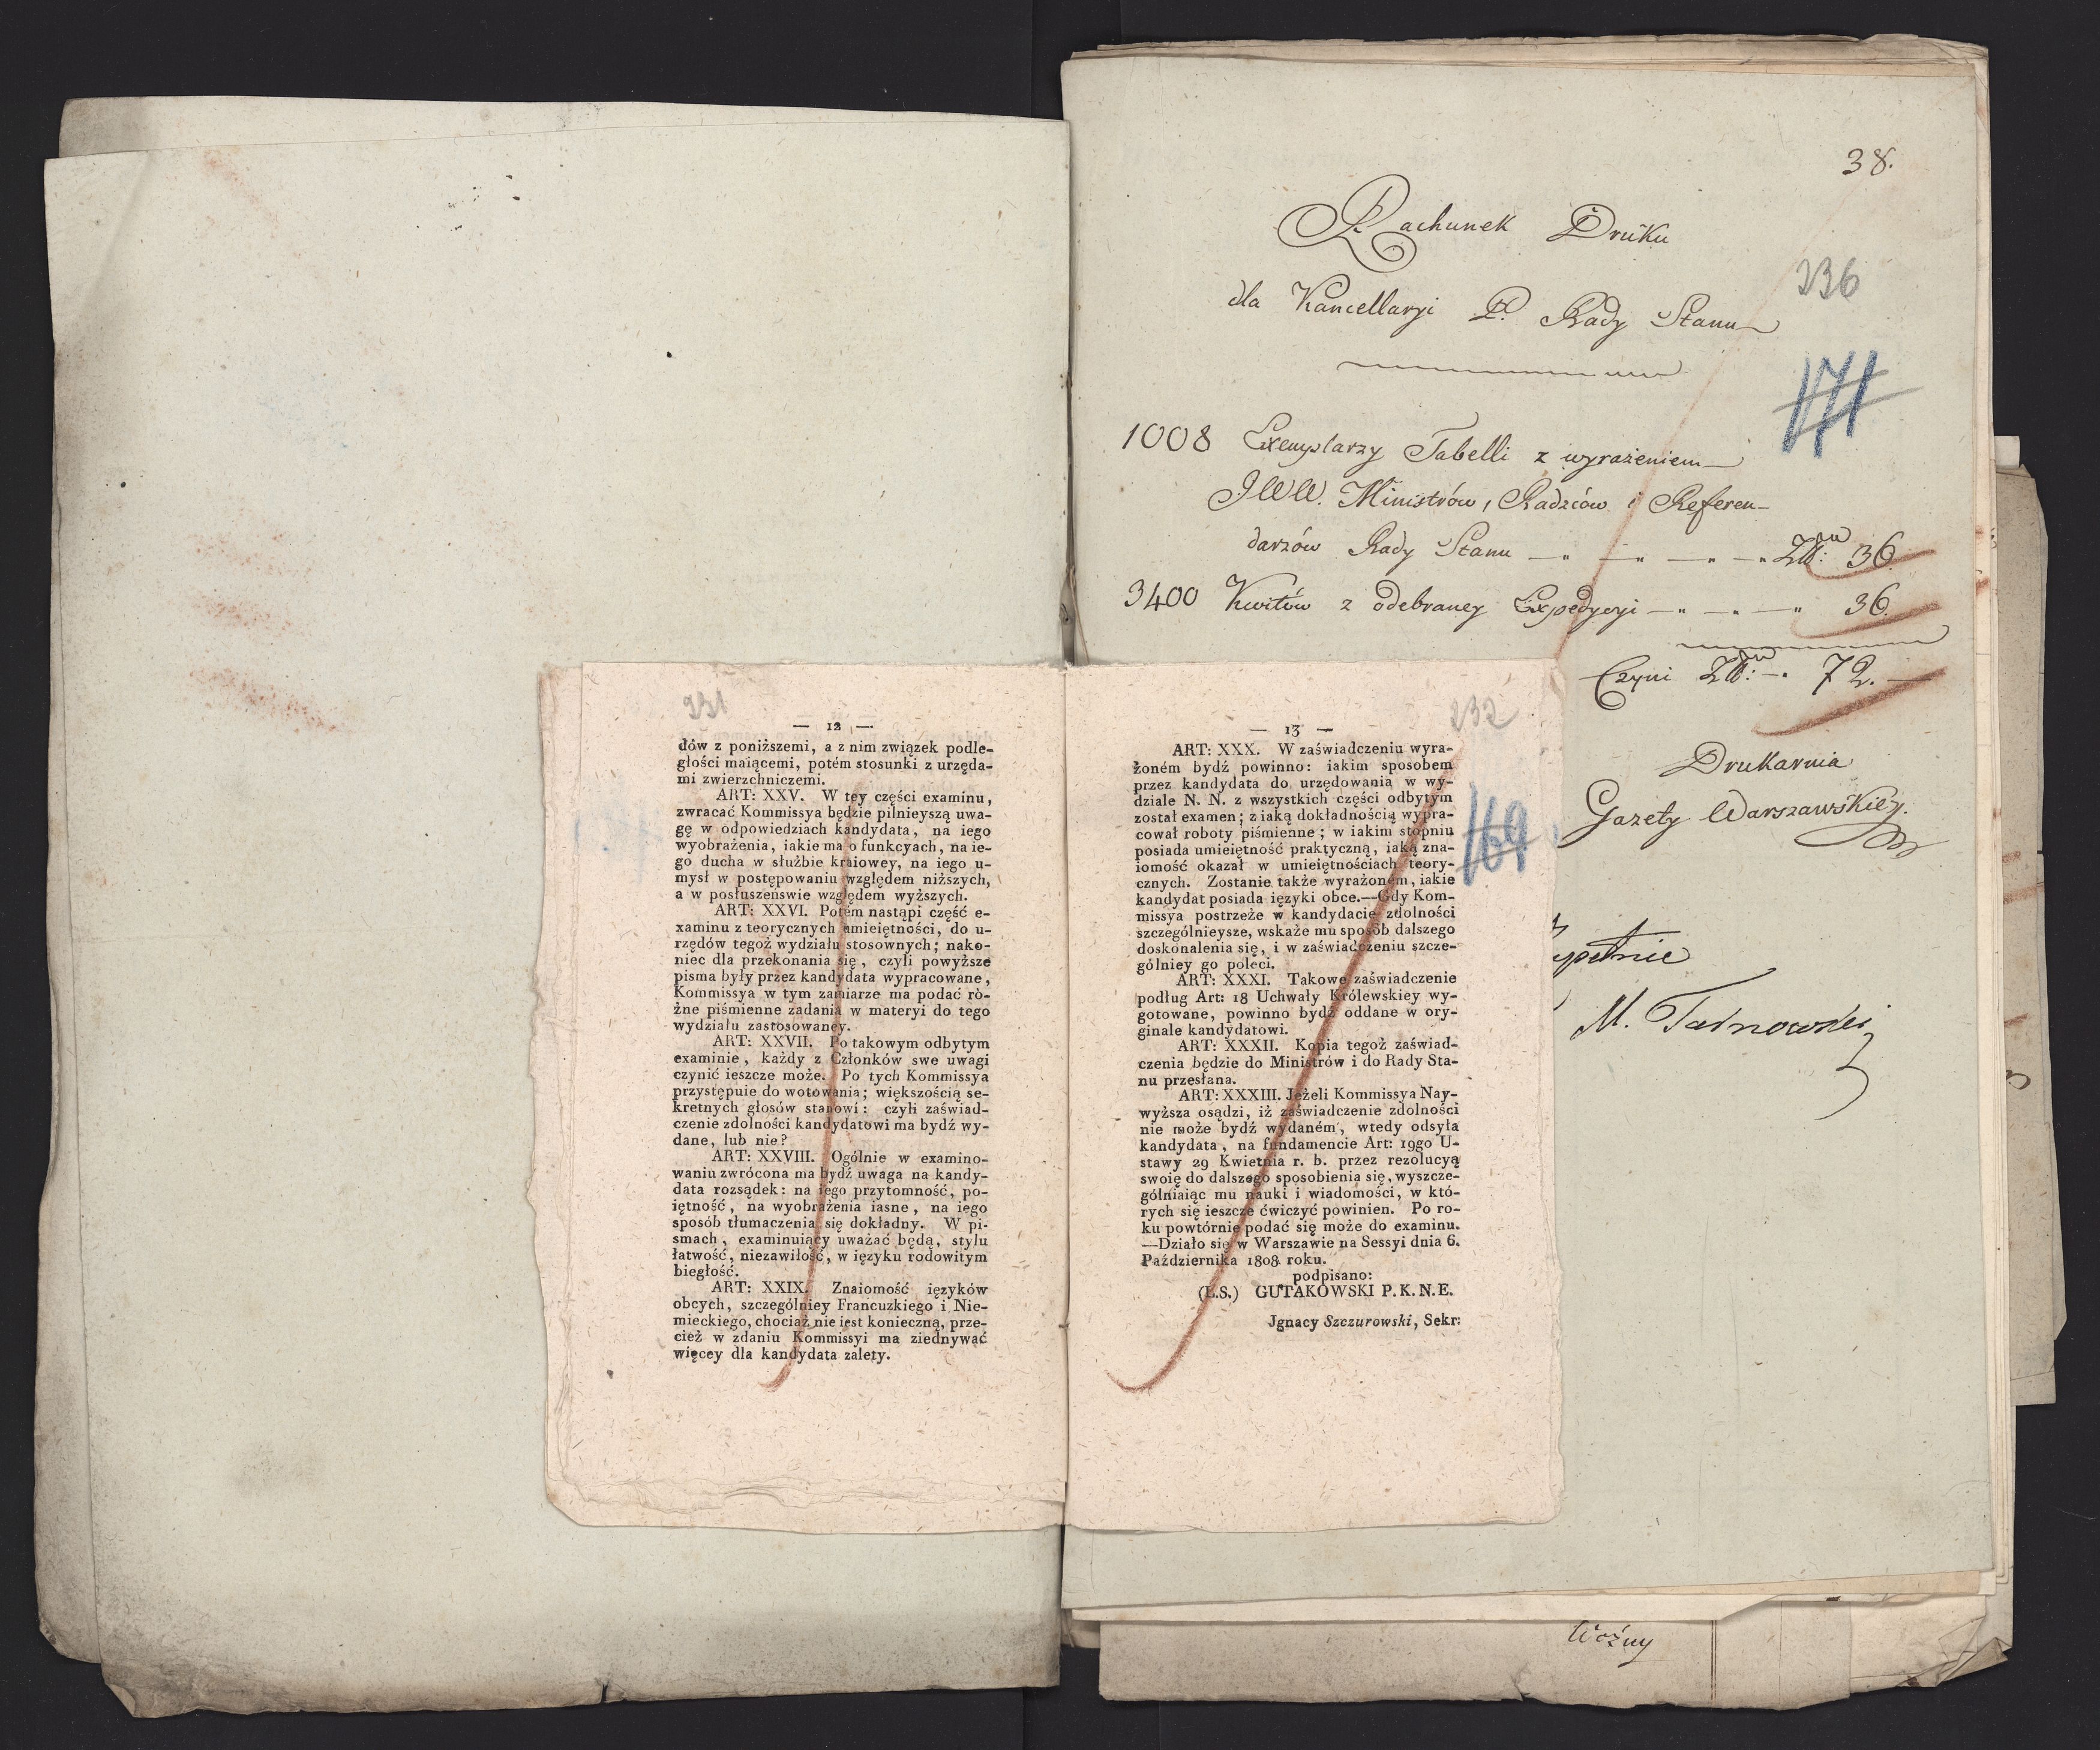 231
— 12 —
dów z poniższemi, a z nim związek podle-
głości maiącemi, potém stosunki z urzęda-
mi zwierzchniczemi.
ART: XXV. W tey części examinu,
zwracać Kommissya będzie pilnieyszą uwa-
gę w odpowiedziach kandydata, na iego
wyobrażenia, iakie ma o funkcyach, na ie-
go ducha w służbie kraiowey, na iego u-
mysł w postępowaniu względem niższych,
a w posłuszeńswie względem wyższych.
ART: XXVI. Potém nastąpi część e-
xaminu z teorycznych umieiętności, do u-
rzędów tegoż wydziału stosownych; nako-
niec dla przekonania się, czyli powyższe
pisma były przez kandydata wypracowane,
Kommissya w tym zamiarze ma podać ró-
żne piśmienne zadania w materyi do tego
wydziału zastosowaney.
ART: XXVII. Po takowym odbytym
examinie, każdy z Członków swe uwagi
czynić ieszcze może. Po tych Kommissya
przystępuie do wotowania; większością se-
kretnych głosów stanowi: czyli zaświad-
czenie zdolności kandydatowi ma bydź wy-
dane, lub nie?
ART: XXVIII. Ogólnie w examino-
waniu zwrócona ma bydź uwaga na kandy-
data rozsądek: na iego przytomność, po-
iętność, na wyobrażenia iasne, na iego
sposób tłumaczenia się dokładny. W pi-
smach, examinuiący uważać będą, stylu
łatwość, niezawiłość, w ięzyku rodowitym
biegłość.
ART: XXIX. Znaiomość ięzyków
obcych, szczególniey Francuzkiego i Nie-
mieckiego, chociaż nie iest konieczną, prze-
cież w zdaniu Kommissyi ma ziednywać
więcey dla kandydata zalety.
232
— 13 —
ART: XXX. W zaświadczeniu wyra-
żoném bydź powinno: iakim sposobem
przez kandydata do urzędowania w wy-
dziale N. N. z wszystkich części odbytym
został examen; z iaką dokładnością wypra-
cował roboty piśmienne; w iakim stopniu
posiada umieiętność praktyczną, iaką zna-
iomość okazał w umieiętnościach teory-
cznych. Zostanie także wyrażoném, iakie
kandydat posiada ięzyki obce.—Gdy Kom-
missya postrzeże w kandydacie zdolności
szczególnieysze, wskaże mu sposób dalszego
doskonalenia się, i w zaświadczeniu szcze-
gólniey go poleci.
ART: XXXI. Takowe zaświadczenie
podług Art: 18 Uchwały Królewskiey wy-
gotowane, powinno bydź oddane w ory-
ginale kandydatowi.
ART: XXXII. Kopia tegoż zaświad-
czenia będzie do Ministrów i do Rady Sta-
nu przesłana.
ART: XXXIII. Jeżeli Kommissya Nay-
wyższa osądzi, iż zaświadczenie zdolności
nie może bydź wydaném, wtedy odsyła
kandydata, na fundamencie Art: 19go U-
stawy 29 Kwietnia r. b. przez rezolucyą
swoię do dalszego sposobienia się, wyszcze-
gólniaiąc mu nauki i wiadomości, w któ-
rych się ieszcze ćwiczyć powinien. Po ro-
ku powtórnie podać się może do examinu.
—Działo się w Warszawie na Sessyi dnia 6.
Października 1808 roku.
podpisano:
(L.S.) GUTAKOWSKI P. K. N. E.
Jgnacy Szczurowski, Sekr:
169
38.
Rachunek Druku
236
dla Kancellaryi P. Rady Stanu
171
1008 Exemplarzy Tabelli z wyrażeniem
JWW. Ministrów, Radzców i Referen-
darzów Rady Stanu — " — " — " — " Zł: 36.
3400 Kwitów z odebraney Expedycyi — " — " — " 36.
Czyni Zł: —. 72. —
Drukarnia
Gazety Warszawskiey.
M. Tarnowski
Woźny